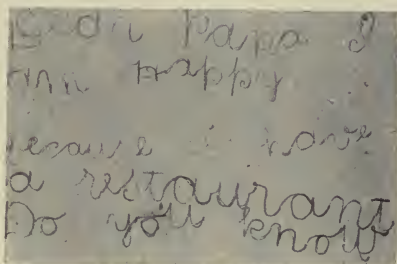 Papa I
am happy
because i have
a restaurant
Do you know